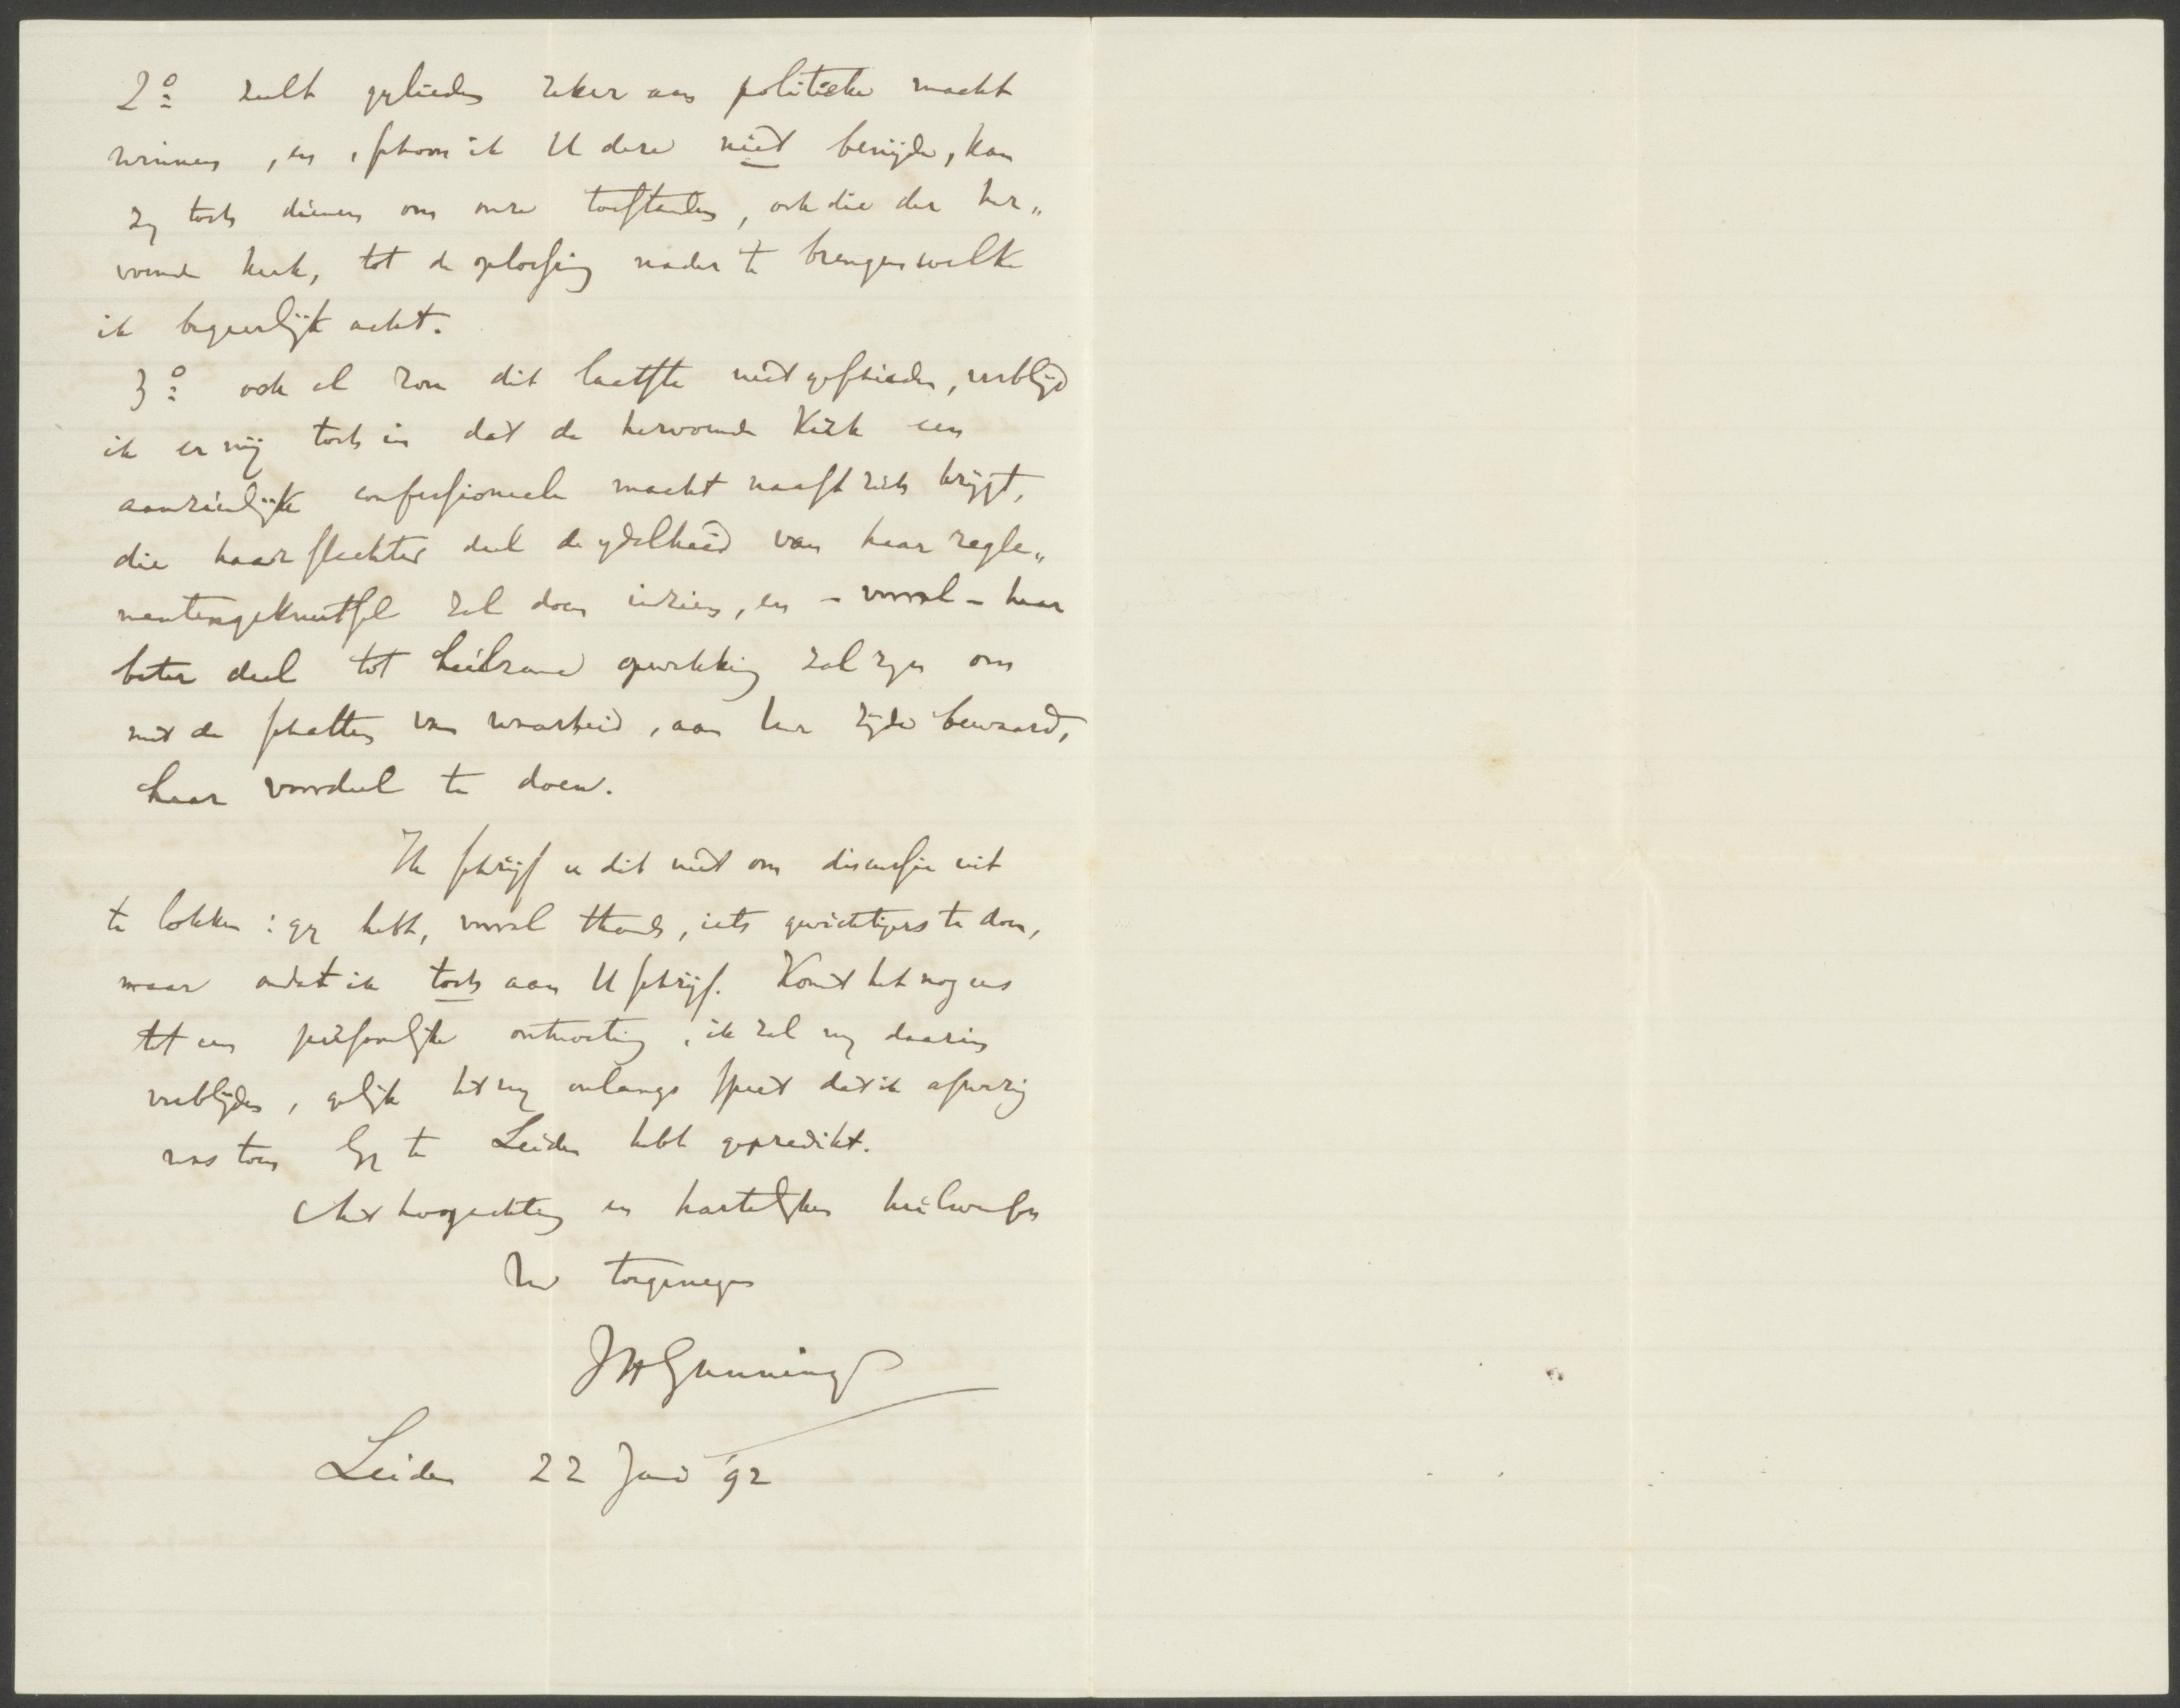 2o: zult gylieden zeker aan politieke macht
winnen, en, schoon ik U deze niet benijde, kan
zy toch dienen om onze toestanden, ook die der her„
vormde kerk, tot de oplossing nader te brengen welke
ik begeerlijk acht.
3o: ook al zou dit laatste niet geschieden, verblijd
ik er mij toch in dat de hervormde Kerk een
aanzienlijke confessioneele macht naast zich krijgt,
die haar slechter deel de ydelheid van haar regle„
mentengeknutsel zal doen inzien, en - vooral - haar
beter deel tot heilzame opwekking zal zyn om
met de schatten van waarheid, aan uw zijde bewaard,
haar voordeel te doen.
Ik schrijf u dit niet om discussie uit
te lokken: gy hebt, vooral thands, iets gewichtigers te doen,
maar omdat ik toch aan U schrijf. Komt het nog eens
tot een persoonlijke ontmoeting, ik zal my daarin
verblijden, gelijk het my onlangs speet dat ik afwezig
was toen Gy te Leiden hebt gepredikt.
Met hoogachting en hartelijken heilwensch
Uw toegenegen
JHGunning
Leiden 22 Juni '92